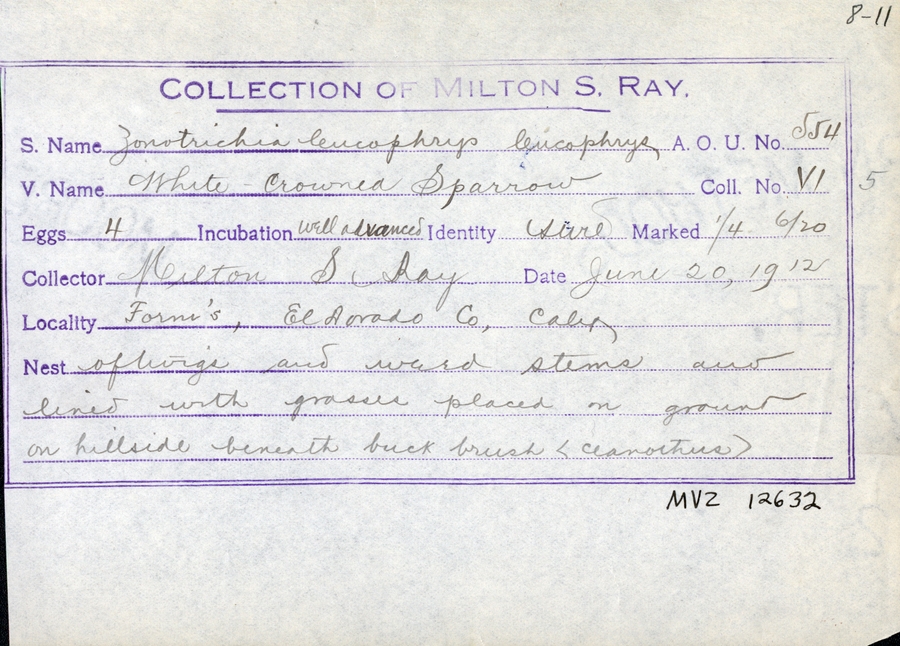 8-11
COLLECTION OF MILTON S. RAY.
S. Name Zonotrichia leucophrys leucophrys A. O. U. No. 554
V. Name White-Crowned Sparrow Coll. No. VI 5
Eggs 4 Incubation well advanced Identity Marked 1/4 6/20
Collector Milton S Ray Date June 20, 1912
Locality Forni's, El Dorado Co, Calif
Nest of twigs and weed stems and
lined with grasses placed on ground
on hillside beneath buck brush <ceanothus>
MVZ 12632